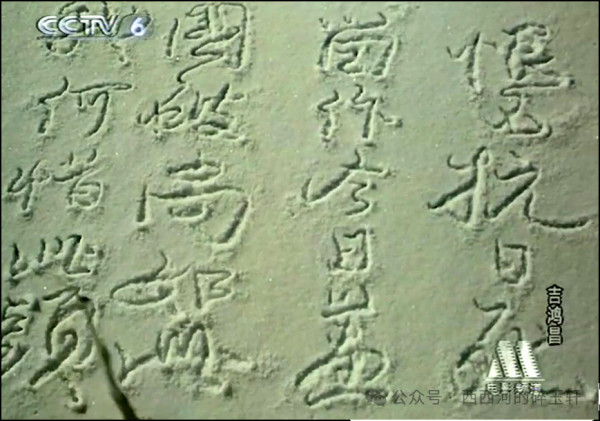 CCTV 6
恨不抗日死
留作今日羞
國破尚如此
我何惜此頭
吉鸿昌
公众号 · 西西河的碎玉轩